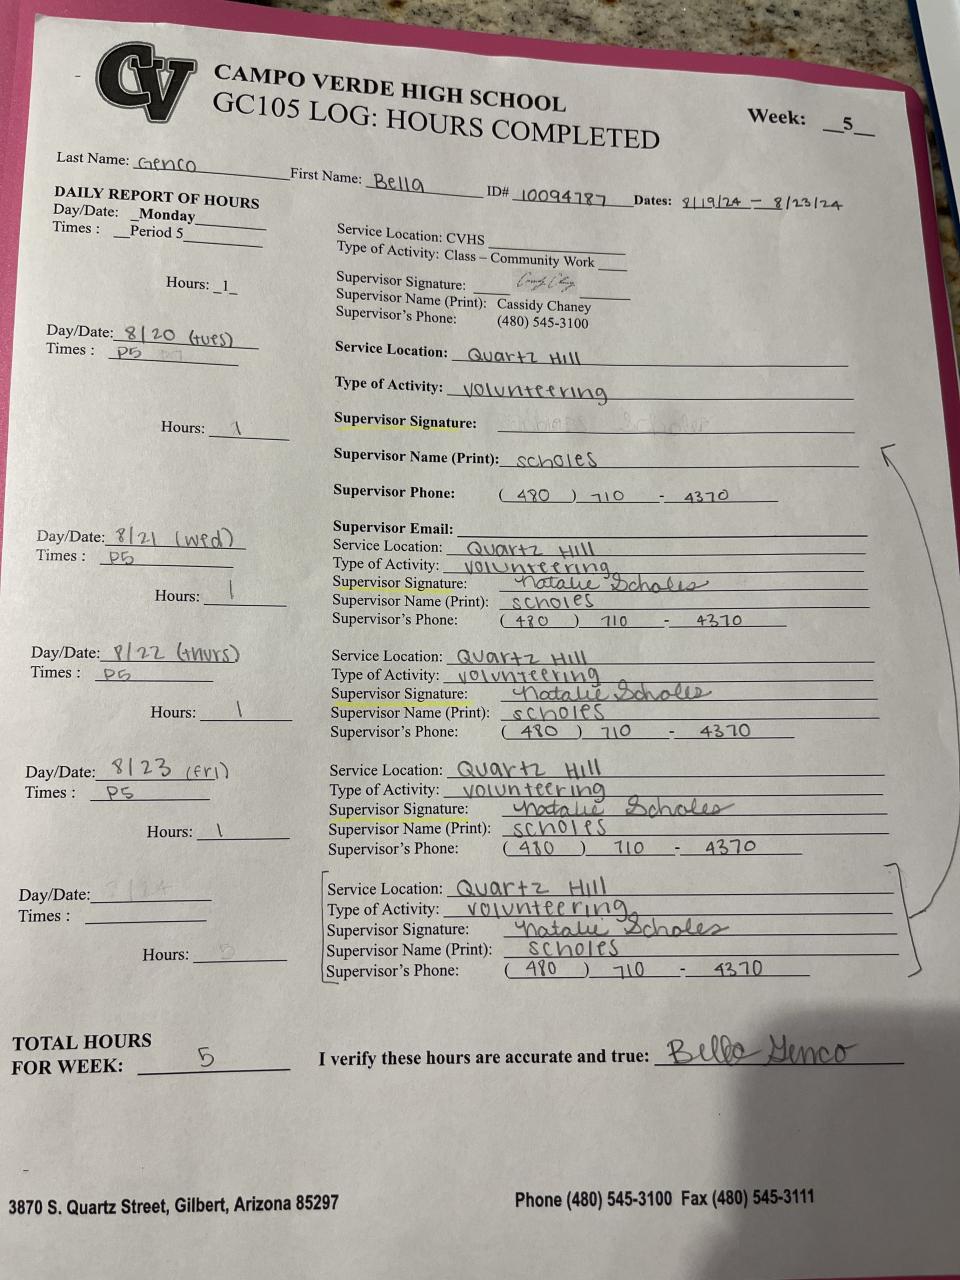 CV
CAMPO VERDE HIGH SCHOOL
GC105 LOG: HOURS COMPLETED
Week: __5__
Last Name: Genco First Name: Bella ID# 10094787 Dates: 8/19/24 - 8/23/24
DAILY REPORT OF HOURS
Day/Date: _Monday
Times : __Period 5
Hours: _1_
Service Location: CVHS
Type of Activity: Class – Community Work
Supervisor Signature:
Supervisor Name (Print): Cassidy Chaney
Supervisor's Phone: (480) 545-3100
Day/Date: 8/20 (tues)
Times : P5
Hours: 1
Service Location: Quartz Hill
Type of Activity: volunteering
Supervisor Signature:
Supervisor Name (Print): scholes
Supervisor Phone: (480) 710 - 4370
Supervisor Email:
Day/Date: 8/21 (wed)
Times : P5
Hours: 1
Service Location: Quartz Hill
Type of Activity: volunteering
Supervisor Signature: Natalie Scholes
Supervisor Name (Print): scholes
Supervisor's Phone: (480) 710 - 4370
Day/Date: 8/22 (thurs)
Times : P5
Hours: 1
Service Location: Quartz Hill
Type of Activity: volunteering
Supervisor Signature: Natalie Scholes
Supervisor Name (Print): scholes
Supervisor's Phone: (480) 710 - 4370
Day/Date: 8/23 (fri)
Times : P5
Hours: 1
Service Location: Quartz Hill
Type of Activity: volunteering
Supervisor Signature: Natalie Scholes
Supervisor Name (Print): scholes
Supervisor's Phone: (480) 710 - 4370
Day/Date:
Times :
Hours:
Service Location: Quartz Hill
Type of Activity: volunteering
Supervisor Signature: Natalie Scholes
Supervisor Name (Print): scholes
Supervisor's Phone: (480) 710 - 4370
TOTAL HOURS
FOR WEEK: 5
I verify these hours are accurate and true: Bella Genco
3870 S. Quartz Street, Gilbert, Arizona 85297
Phone (480) 545-3100 Fax (480) 545-3111